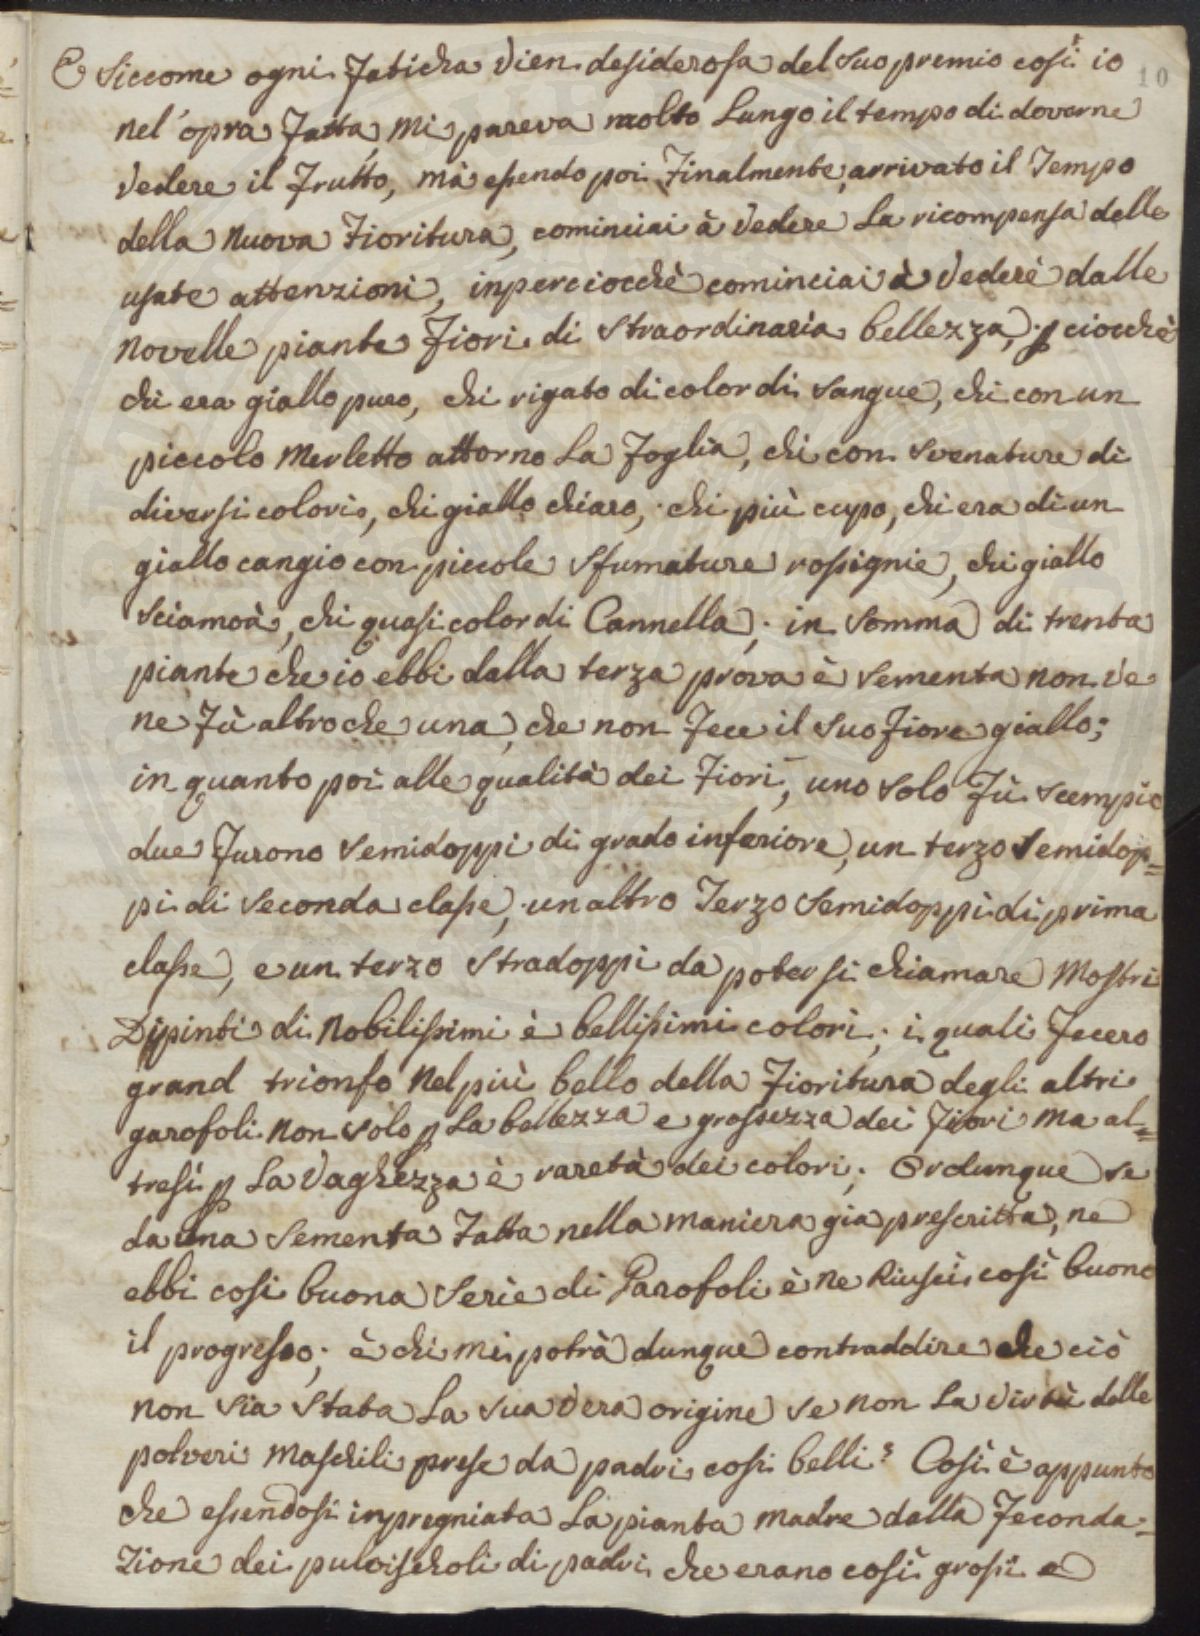 E siccome ogni faticha vien desiderosa del suo premio così io
10
nel'opra fatta mi pareva molto lungo il tempo di doverne
vedere il frutto, mà essendo poi finalmente arrivato il tempo
della nuova fioritura, cominciai à vedere la ricompensa delle
usate attenzioni, inperciocchè cominciai à vederè dalle
novelle piante fiori di straordinaria bellezza, p ciocchè
chi era giallo puro, chi rigato di color di sangue, chi con un
piccolo merletto attorno la foglia, chi con svenature di
diversi colori, chi giallo chiaro, chi più cupo, chi era di un
giallo cangio con piccole sfumature rossignie, chi giallo
sciamoà, chi quasi color di Cannella; in somma di trenta
piante che io ebbi dalla terza prova è sementa non ve
ne fù altro che una, che non fece il suo fiore giallo;
in quanto poi alle qualità dei fiori, uno solo fù scempio
due furono semidoppi di grado inferiore, un terzo semidop=
pi di seconda classe, un altro terzo semidoppi di prima
classe, e un terzo stradoppi da potersi chiamare mostri
Dipinti di nobilissimi è bellissimi colori, i quali fecero
grand trionfo nel più bello della fioritura degli altri
garofoli non solo p la bellezza e grossezza dei fiori ma al=
tresì p la vaghezza è raretà dei colori; Ordunque se
da una sementa fatta nella maniera già prescritta, ne
ebbi così buona serie di Garofoli è ne riuscì così buono
il progresso; è chi mi potrà dunque contraddire che ciò
non sia stata la sua vera origine se non la virtù delle
polveri maschili prese da padri così belli? Così è appunto
che essendosi inpregniata la pianta madre dalla feconda=
zione dei pulvischoli di padri che erano così grossi e